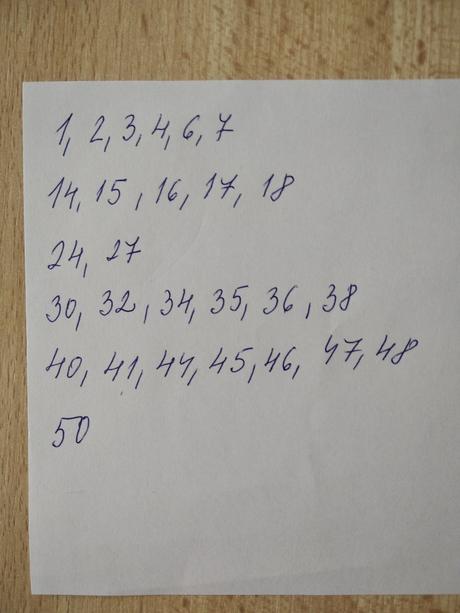 1, 2, 3, 4, 6, 7
14, 15, 16, 17, 18
24, 27
30, 32, 34, 35, 36, 38
40, 41, 44, 45, 46, 47, 48
50